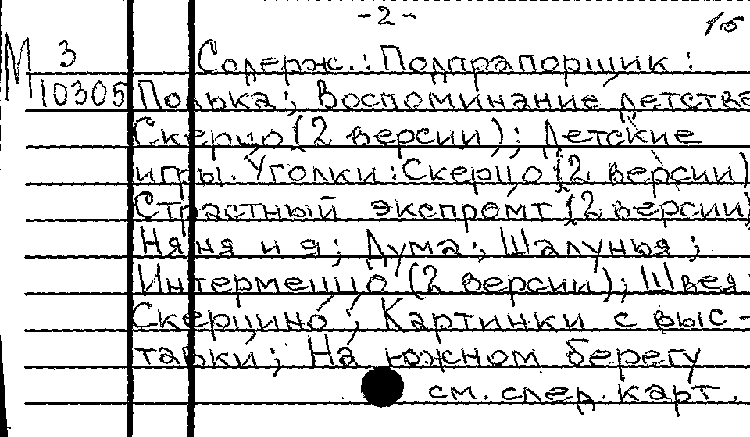 -2-
15
М 3
10305
Содерж.: Подпрапорщик:
Полька; Воспоминание детства
Скерцо (2 версии); Детские
игры. Уголки: Скерцо (2 версии)
Страстный экспромт (2 версии)
Няня и я; Дума; Шалунья;
Интермеццо (2 версии); Швея
Скерцино; Картинки с выс-
тавки; На южном берегу
см. след. карт.